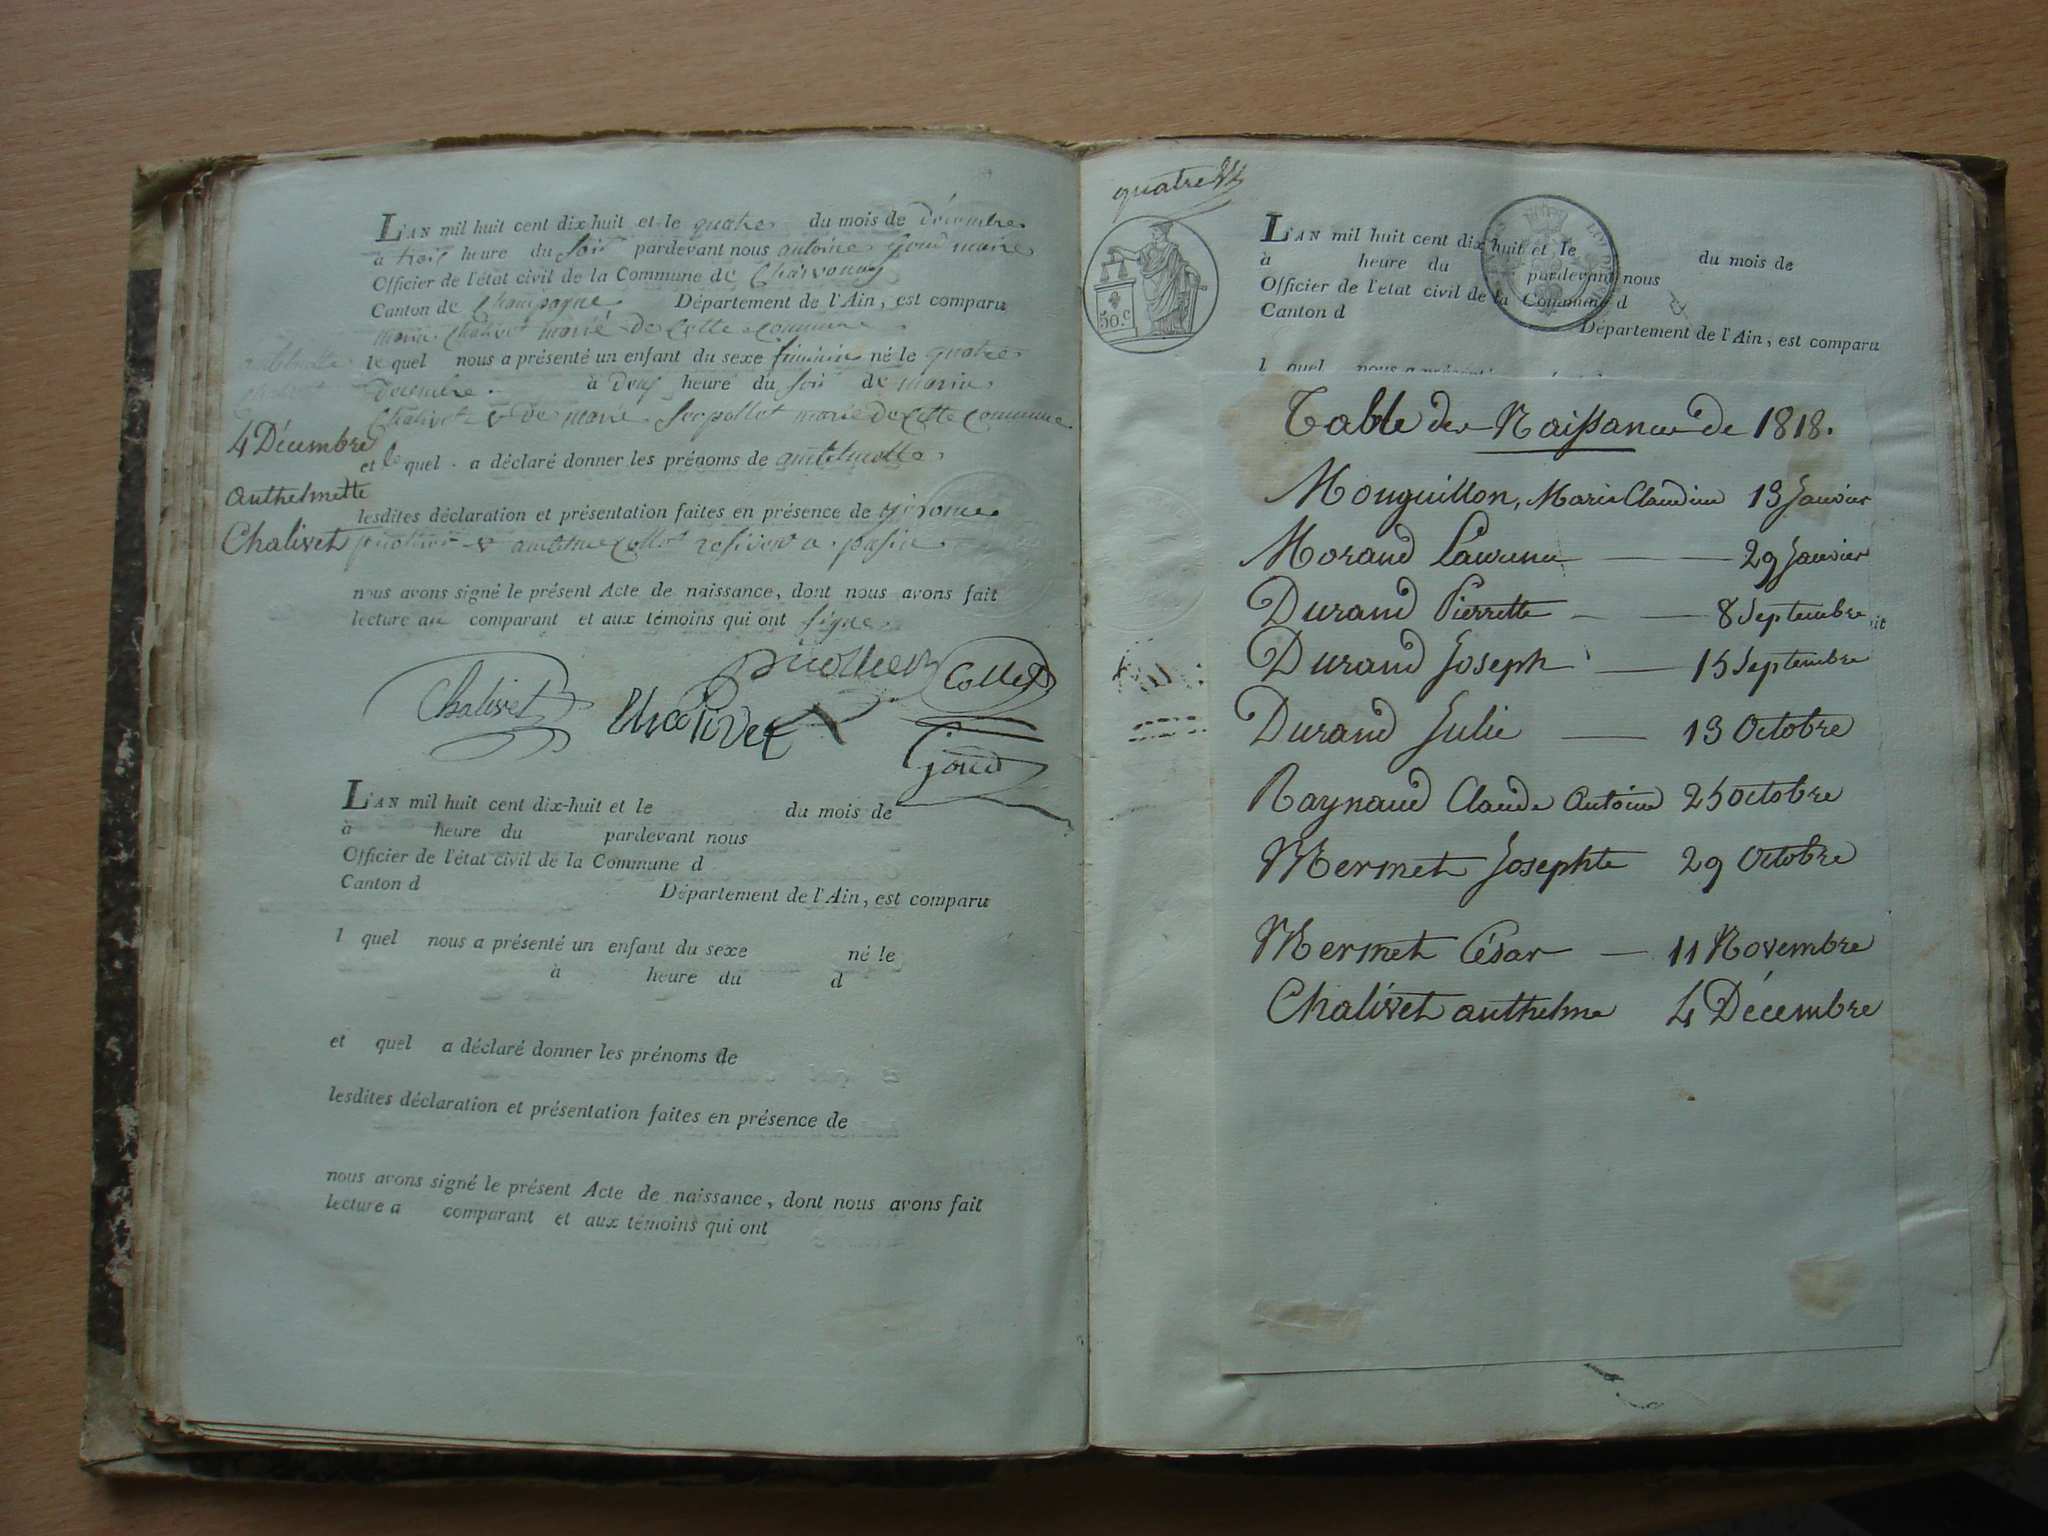 L'AN mil huit cent dix huit et le quatre du mois de décembre
à trois heure du soir pardevant nous antoine goud maire
Officier de l'état civil de la Commune de Charvonay
Canton de Champagne Département de l'Ain, est comparu
marie Chalivet marié de cette commune
le quel nous a présenté un enfant du sexe féminin né le quatre
décembre à deux heure du soir de marie
Chalivet & de marie marié de cette commune
4 Décembre
et le quel a déclaré donner les prénoms de
Anthelmette
lesdites déclaration et présentation faites en présence de
Chalivet
nous avons signé le présent Acte de naissance, dont nous avons fait
lecture au comparant et aux témoins qui ont signé
Chalivet
Collet
goud
L'AN mil huit cent dix-huit et le du mois de
à heure du pardevant nous
Officier de l'état civil de la Commune d
Canton d Département de l'Ain, est comparu
l quel nous a présenté un enfant du sexe né le
à heure du d
et quel a déclaré donner les prénoms de
lesdites déclaration et présentation faites en présence de
nous avons signé le présent Acte de naissance, dont nous avons fait
lecture a comparant et aux témoins qui ont
quatre
50.c
L'AN mil huit cent dix huit et le du mois de
à heure du pardevant nous
Officier de l'etat civil de la Commune d
Canton d Département de l'Ain, est comparu
l quel nous a
Table des Naissances de 1818.
Mouguillon, Marie Claudine 13 Janvier
Morand Laurence 29 Janvier
Durand Pierrette 8 Septembre
Durand Joseph 15 Septembre
Durand Julie 13 Octobre
Raynaud Claude Antoine 25 octobre
Mermet Josephte 29 Octobre
Mermet César 11 Novembre
Chalivet anthelme 4 Décembre